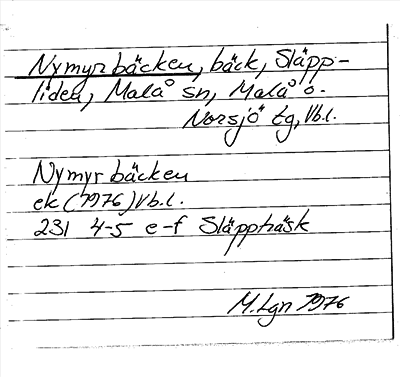 Nymyrbäcken, bäck, Släpp-
liden, Malå sn, Malå o.
Norsjö tg, Vb.l.
Nymyrbäcken
ek (1976) Vb.l.
231 4-5 e-f Släppträsk
M.Lgn 1976